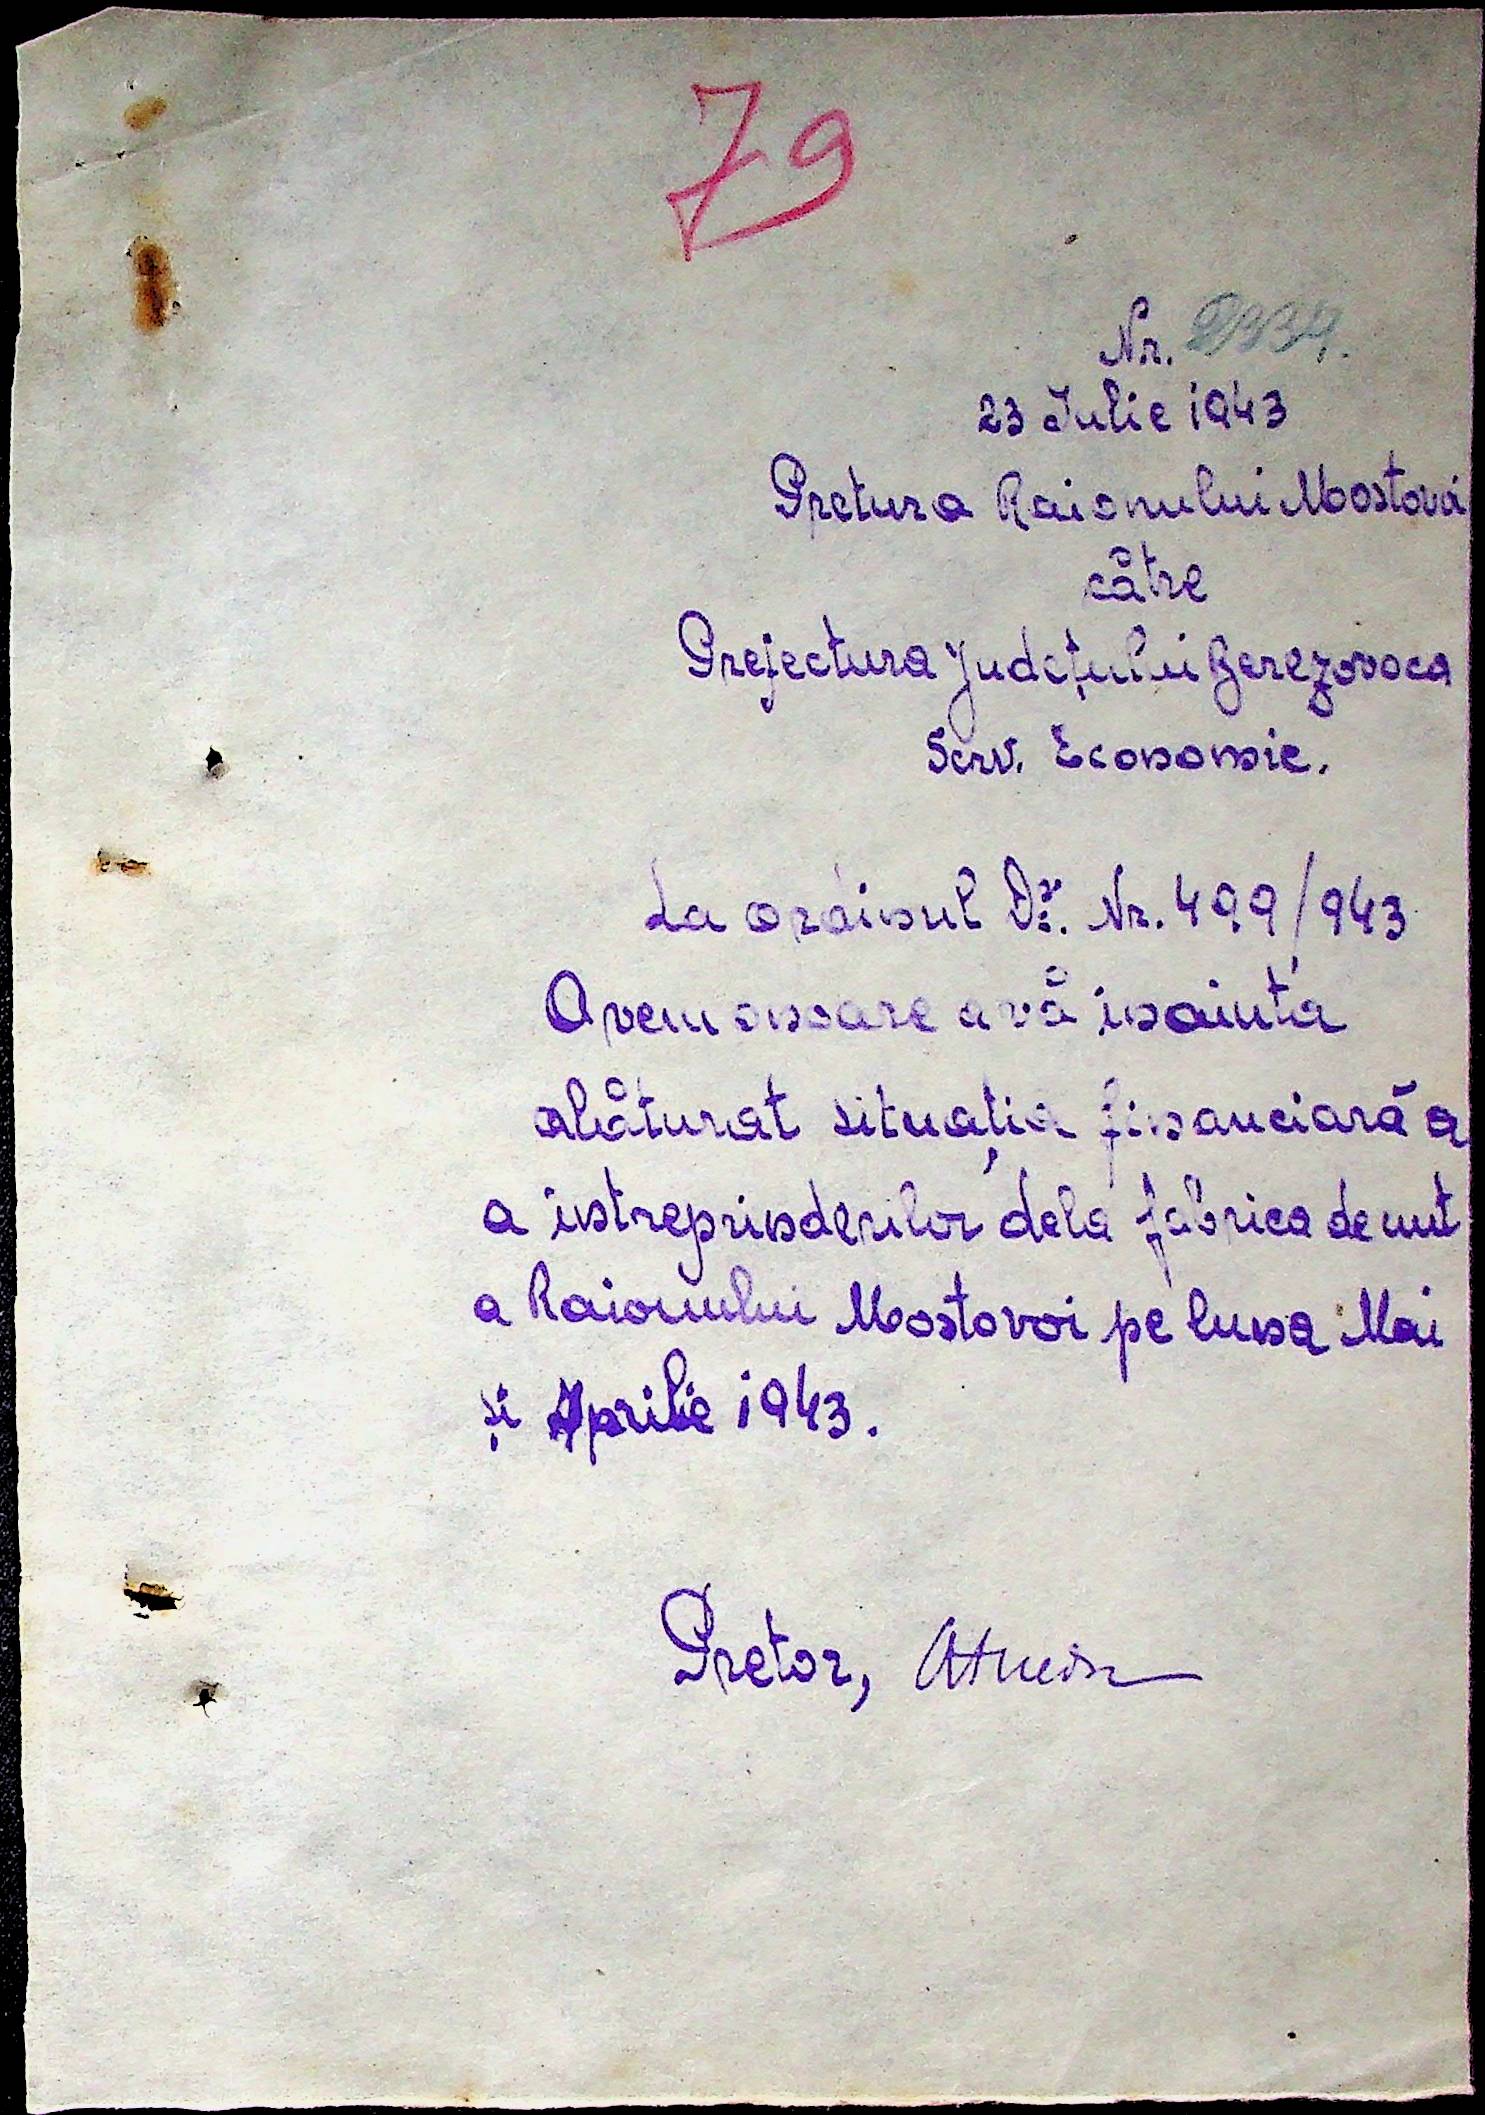 79
Nr. 2334.
23 Iulie 1943
Pretura Raionului Mostovoi
către
Prefectura Județului Berezovca
Serv. Economic.
La ordinul Dv. Nr. 499/943
Avem onoare a vă inainta
alăturat situația financiară a
a intreprinderilor dela fabrica de unt
a Raionului Mostovoi pe luna Mai
și Aprilie 1943.
Pretor,